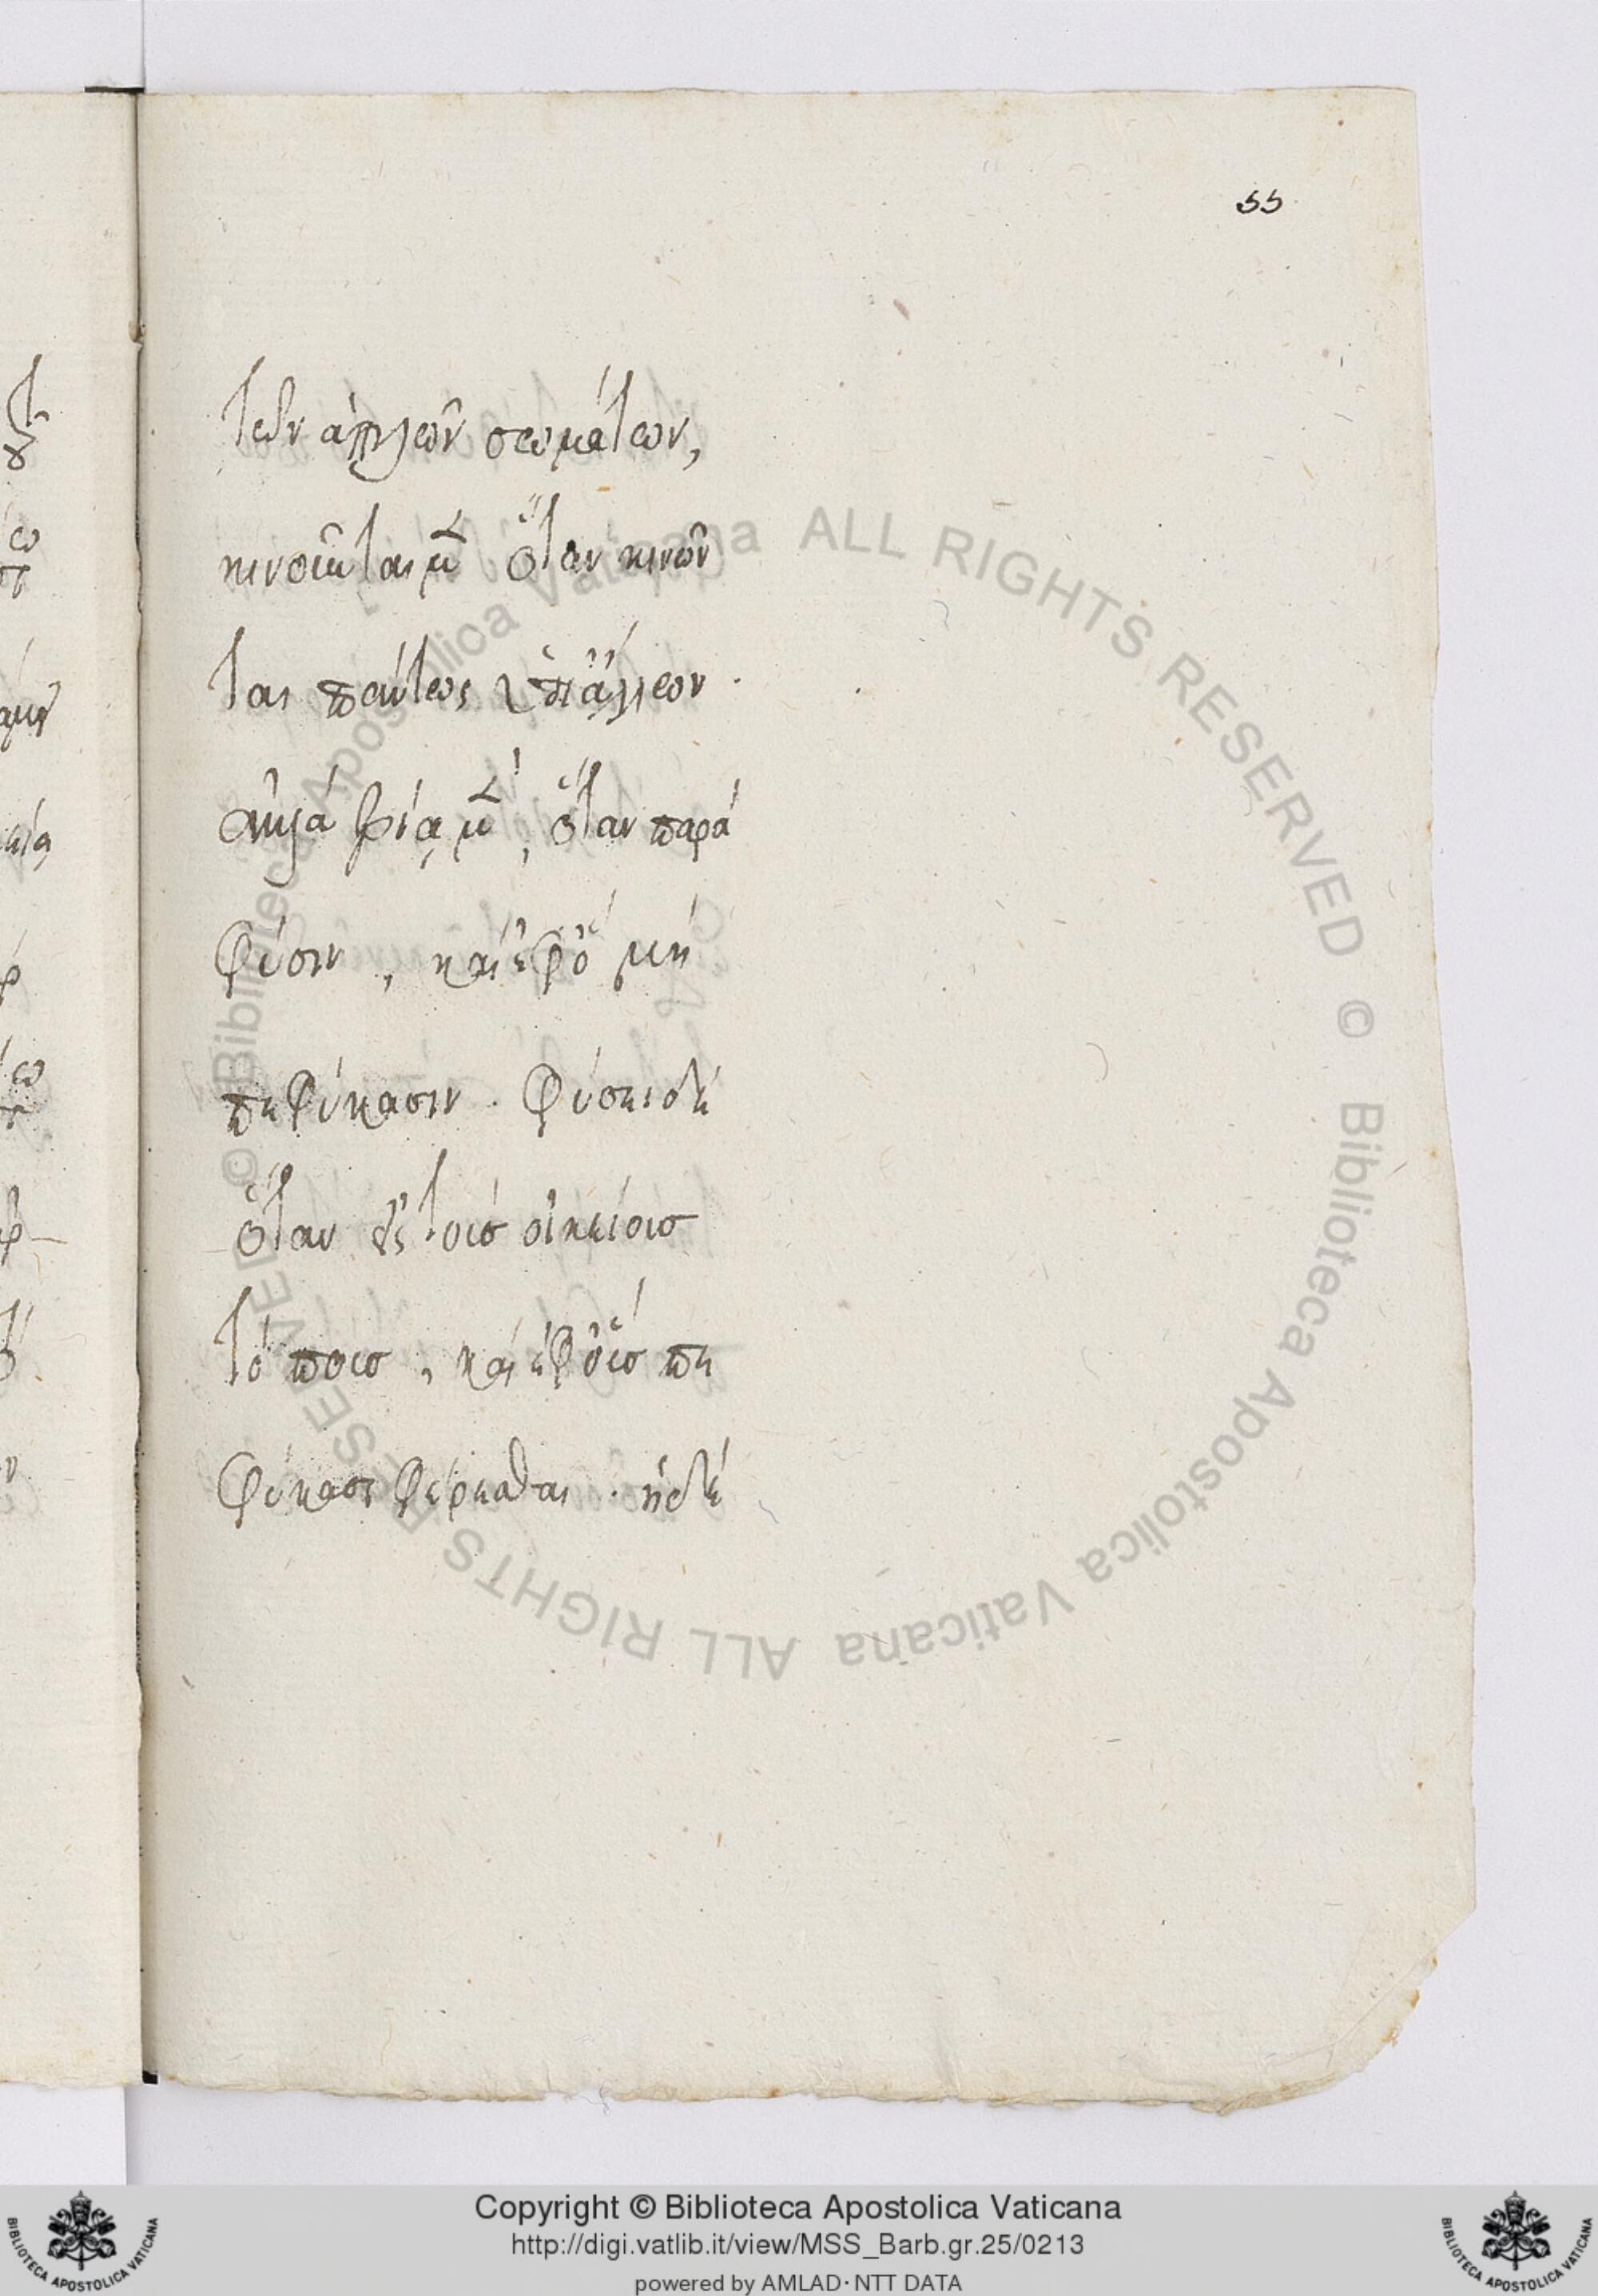 55
τῶν ἁπλῶν σωμάτων,
κινοῦνται μὲν ὅταν κινῶν
ται πάντως ὑπ' ἄλλων.
ἀλλὰ βίᾳ μὲν, ὅταν παρὰ
φύσιν, καὶ ἐφ' ὃ μὴ
πεφύκασιν. φύσει δὲ
ὅταν ἐν τοῖς οἰκείοις
τόποις, καὶ ἐφ' οἷς πε
φύκασι φέρεσθαι. ἡ δὲ
© Biblioteca Apostolica Vaticana ALL RIGHTS RESERVED © Biblioteca Apostolica Vaticana ALL RIGHTS RESERVED
Copyright © Biblioteca Apostolica Vaticana
http://digi.vatlib.it/view/MSS_Barb.gr.25/0213
powered by AMLAD·NTT DATA
BIBLIOTECA APOSTOLICA VATICANA
BIBLIOTECA APOSTOLICA VATICANA